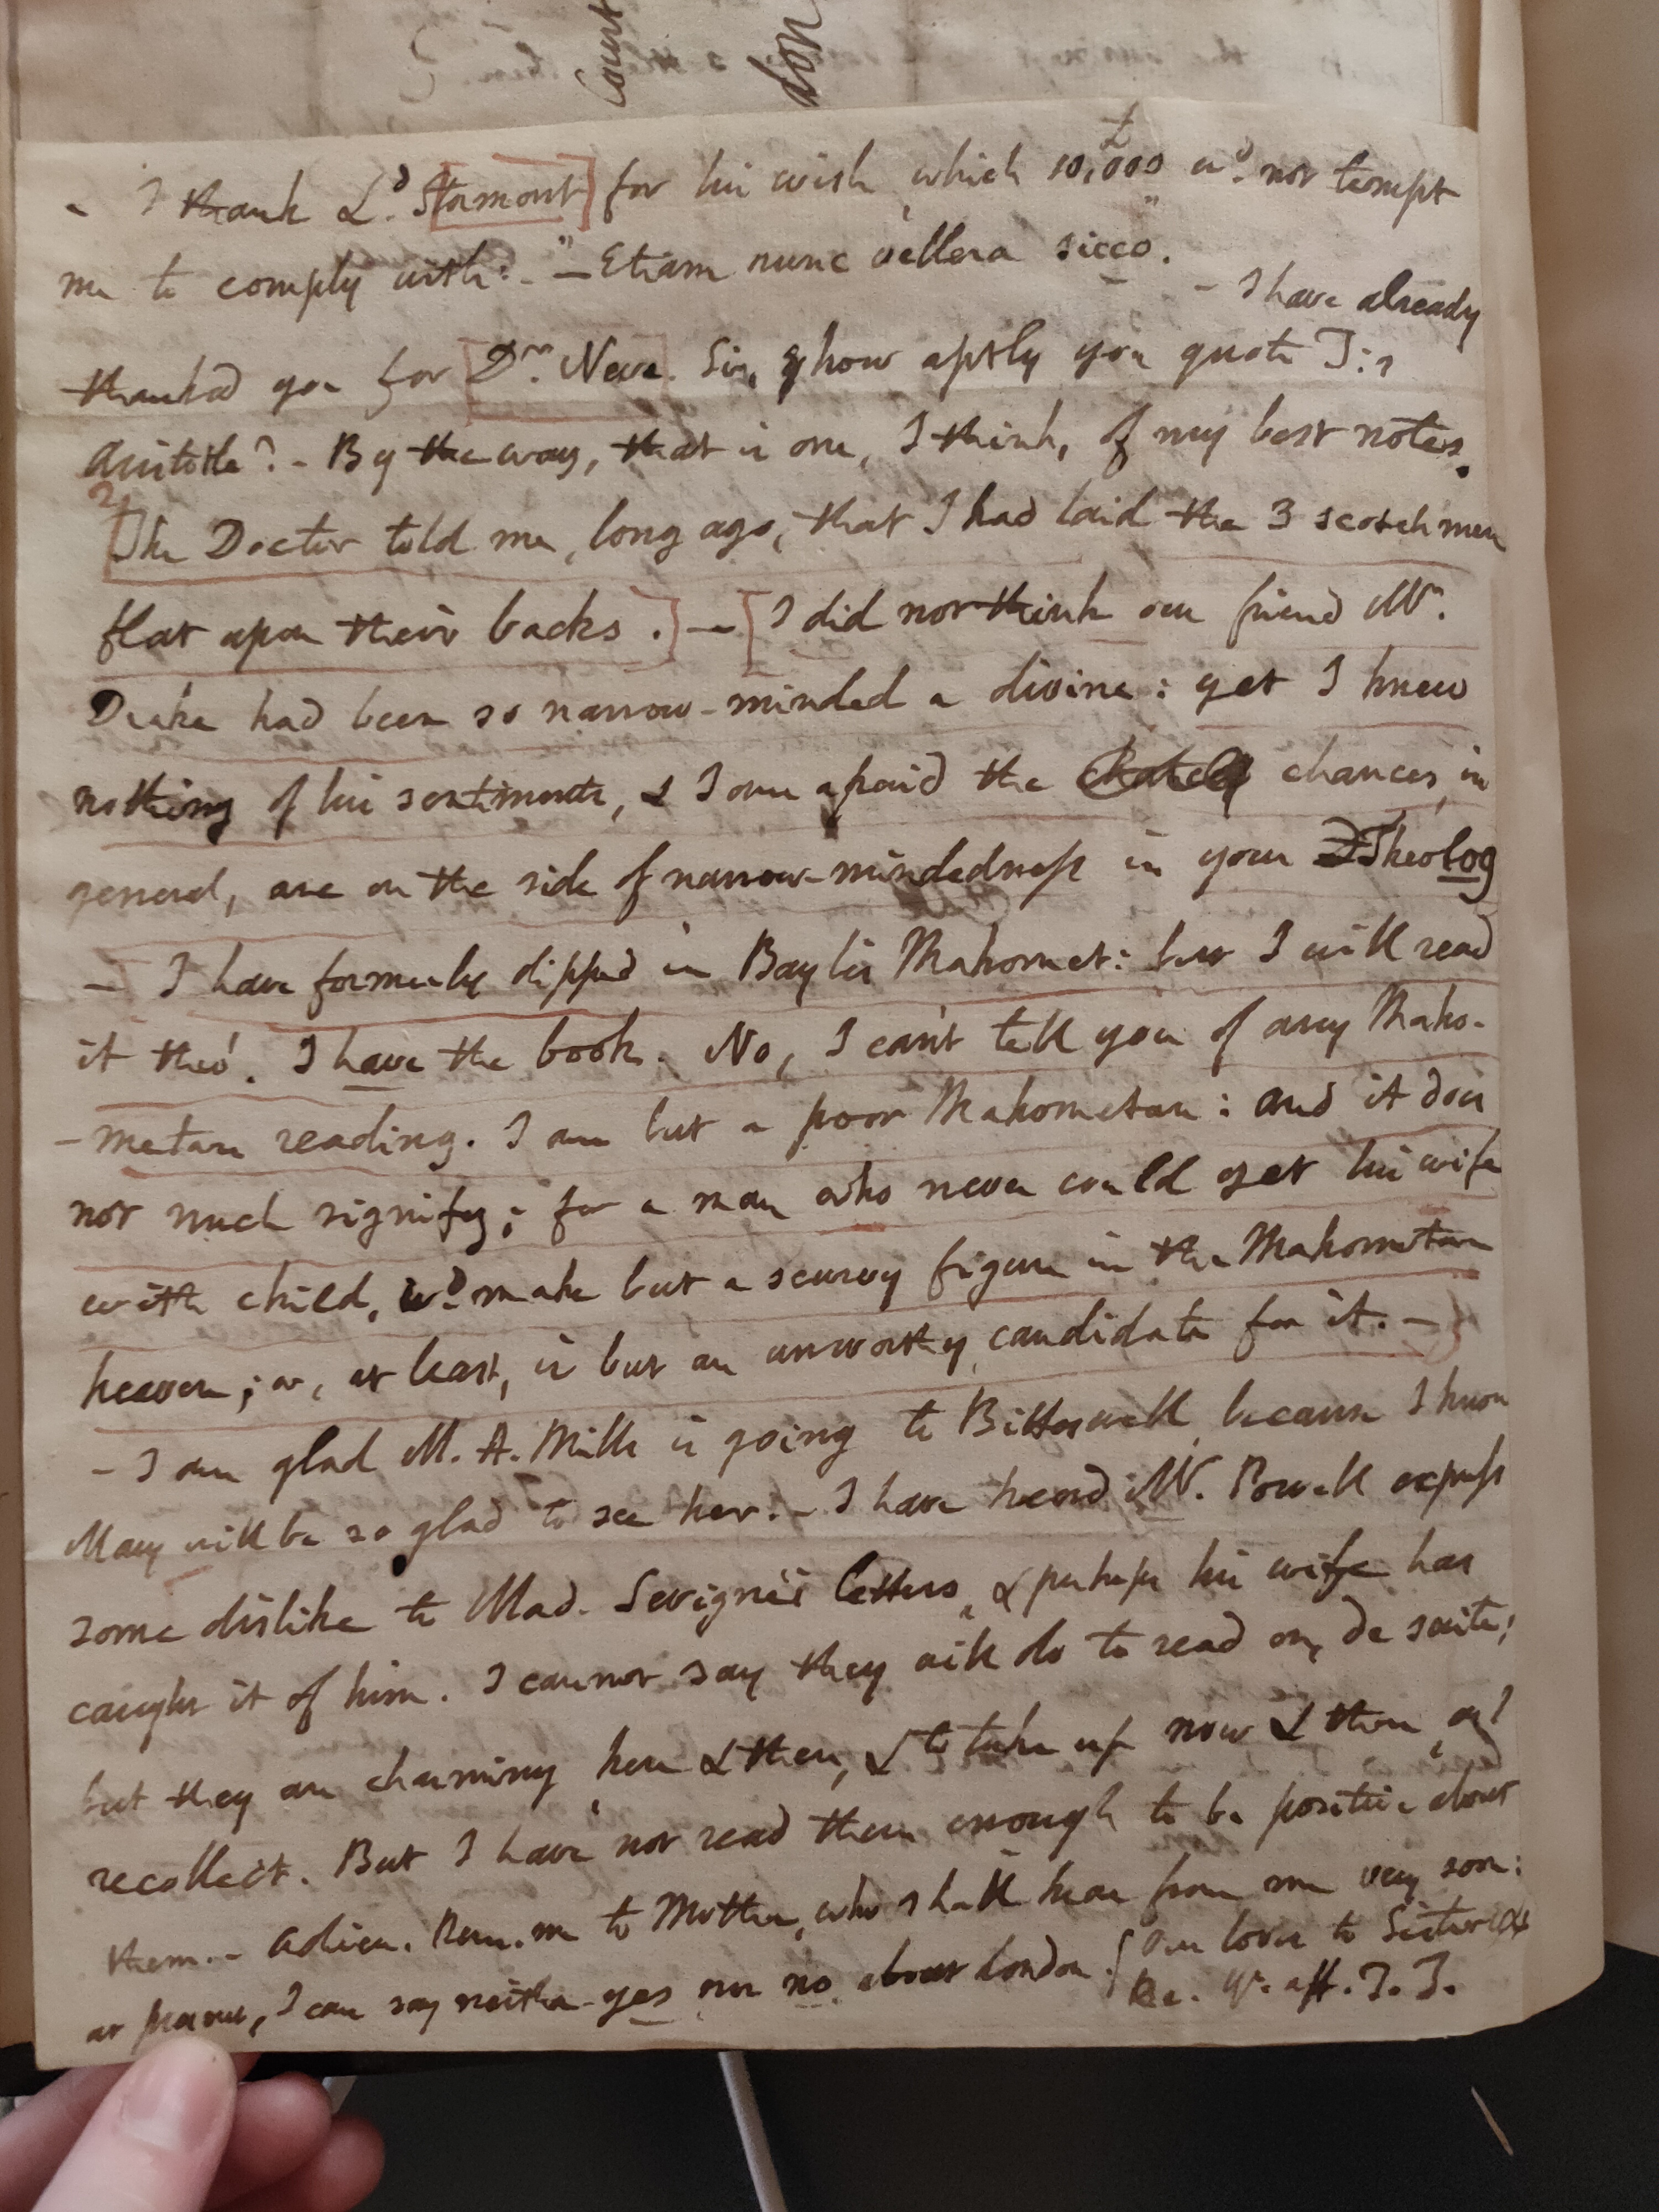 Court
don
- I thank L.d Stormont for his wish, which 10,000£ w.d not tempt
me to comply with: "- Etiam nunc vellera sicco."
- I have already
thanked you for D.r Neve. Sir, how aptly you quote T:s
Aristotle? - By the way, that is one, I think, of my best notes.
The Doctor told me, long ago, that I had laid the 3 scotchmen
flat upon their backs. - I did not think our friend Mr.
Drake had been so narrow-minded a divine: yet I knew
nothing of his sentiments, & I am afraid the chances, in
general, are on the side of narrow-mindedness in your Theolog
- I have formerly dipped in Bayle's Mahomet: but I will read
it thro'. I have the book. No, I can't tell you of any Maho-
-metan reading. I am but a poor Mahometan: and it does
not much signify; for a man who never could get his wife
with child, w.d make but a scurvy figure in the Mahometan
heaven; or, at least, is but an unworthy candidate for it. -
- I am glad M. A. Mills is going to Bitteswell, because I know
Mary will be so glad to see her. - I have heard Mr. Powell express
some dislike to Mad. Sevigné's letters, & perhaps his wife has
caught it of him. I cannot say they will do to read on, de suite;
but they are charming, here & there, & to take up now & then, as I
recollect. But I have not read them enough to be positive about
them. - Adieu. Rem. me to Mother, who shall hear from me very soon:
at present, I can say neither yes nor no about London. Our loves to Sister &
&c. Yr. aff. T. T.